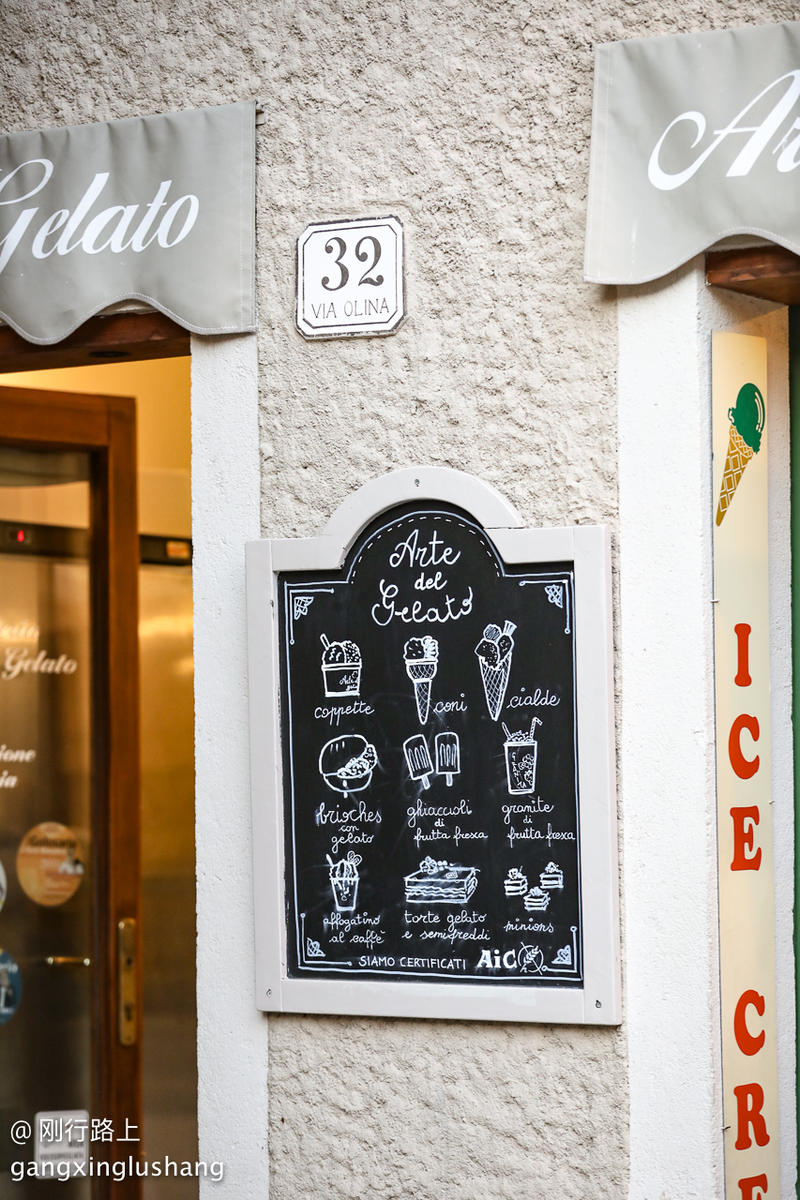 Gelato
Ar
32
VIA OLINA
Arte
del
Gelato
coppette
coni
cialde
brioches
con
gelato
ghiaccioli
di
frutta fresca
granite
di
frutta fresca
affogatino
al caffè
torte gelato
e semifreddi
minions
SIAMO CERTIFICATI AiC
ICE CRE
Gelato
@刚行路上
gangxinglushang